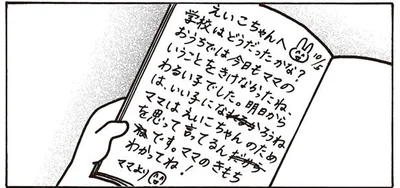 えいこちゃんへ 10/5
学校はどうだったかな?
おうちでは今日もママの
いうことをきけなかったね、
わるい子でした。明日から
は、いい子になろうね
ママはえいこちゃんのため
を思って言ってるん
です。ママのきもち
わかってね!
ママより